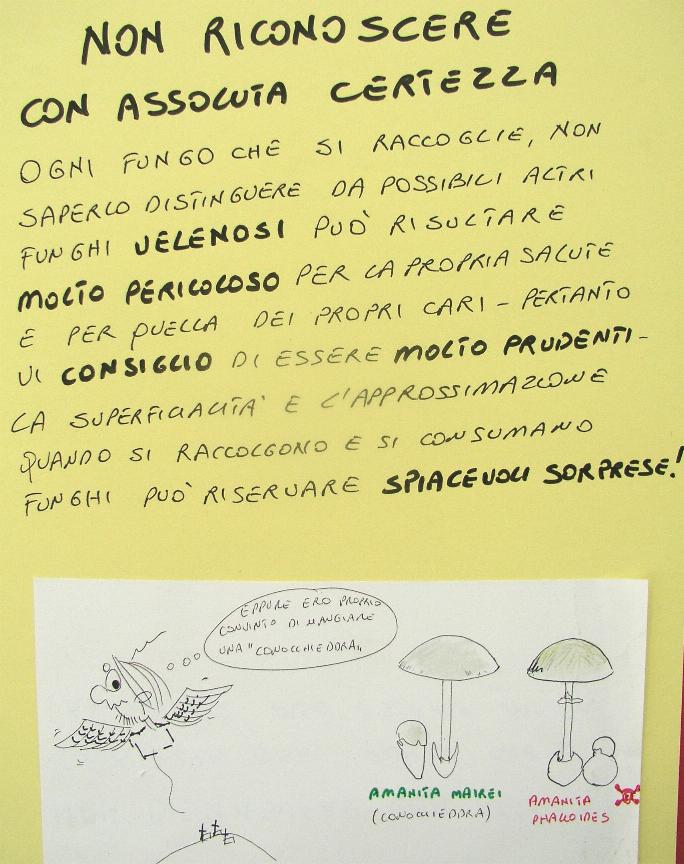 NON RICONOSCERE
CON ASSOLUTA CERTEZZA
OGNI FUNGO CHE SI RACCOGLIE, NON
SAPERLO DISTINGUERE DA POSSIBILI ALTRI
FUNGHI VELENOSI PUÒ RISULTARE
MOLTO PERICOLOSO PER LA PROPRIA SALUTE
E PER QUELLA DEI PROPRI CARI - PERTANTO
VI CONSIGLIO DI ESSERE MOLTO PRUDENTI -
LA SUPERFICIALITA' E L'APPROSSIMAZIONE
QUANDO SI RACCOLGONO E SI CONSUMANO
FUNGHI PUÒ RISERVARE SPIACEVOLI SORPRESE!
EPPURE ERO PROPRIO
CONVINTO DI MANGIARE
UNA "CONOCCHIEDDRA"
AMANITA MAIREI
(CONOCCHIEDDRA)
AMANITA
PHALLOIDES